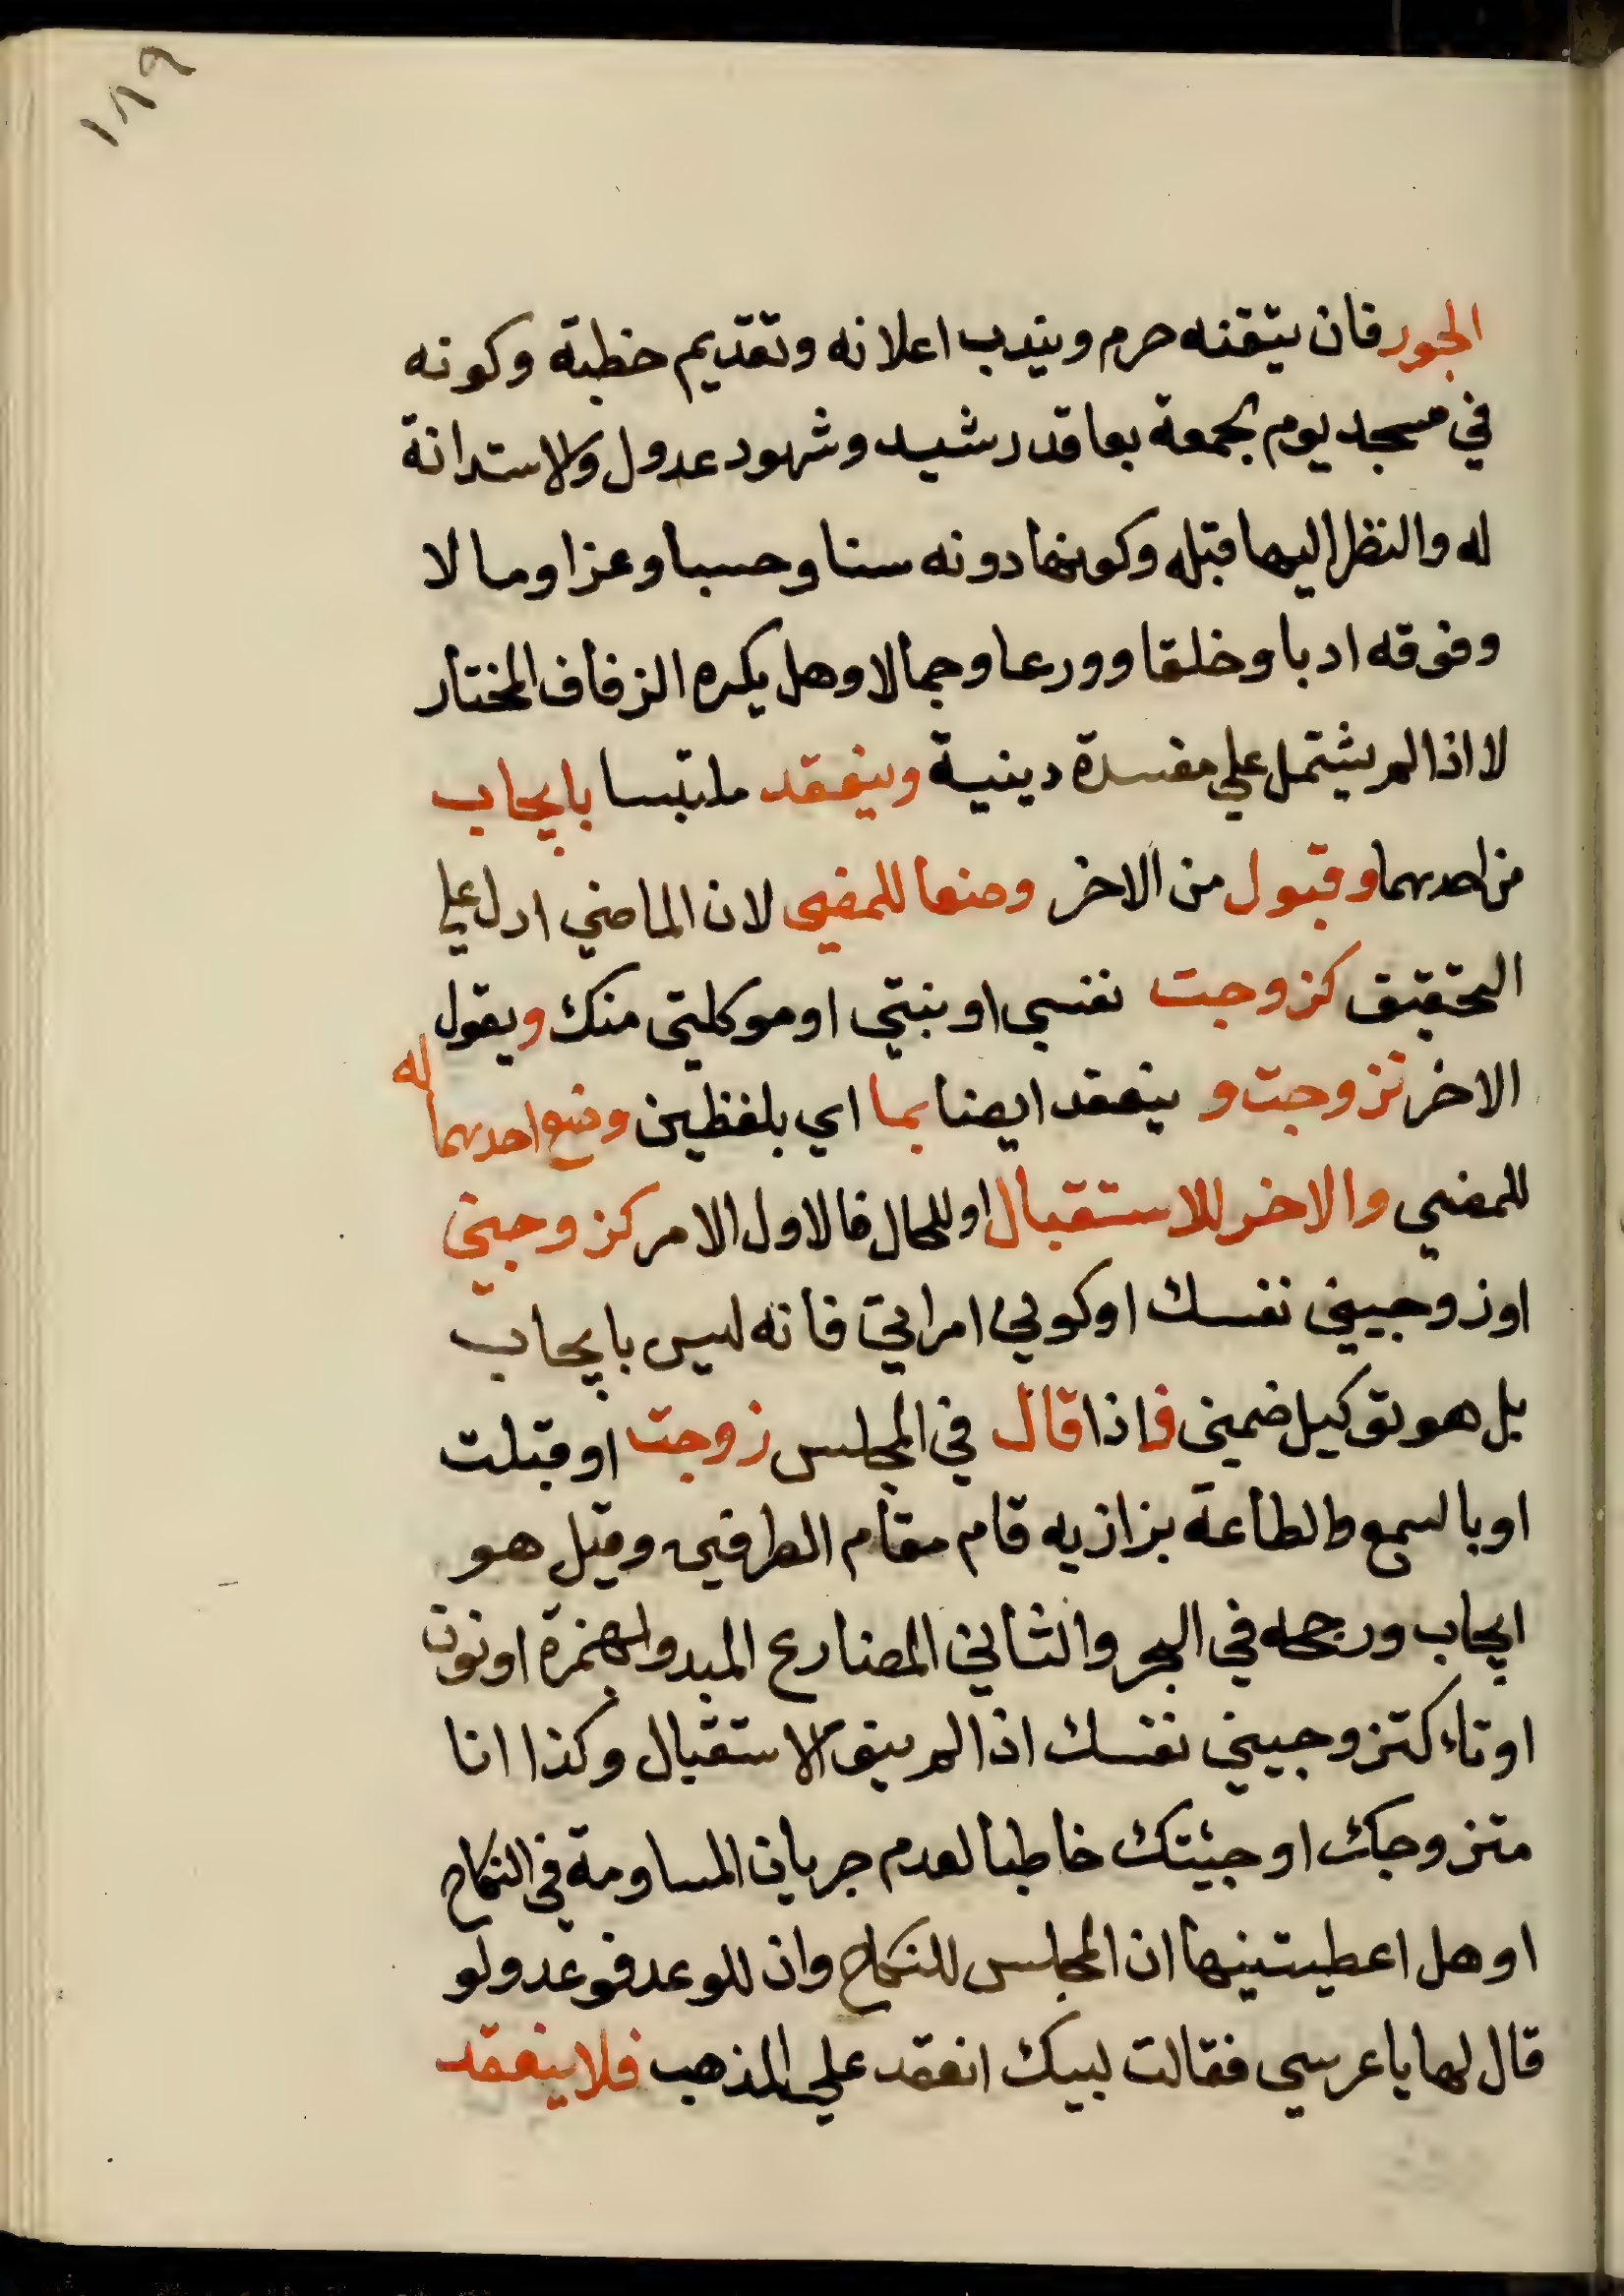 ١٨٩
الجور فان تيقنه حرم ويندب اعلانه وتقديم خطبة وكونه
في مسجد يوم جمعة بعاقد رشيد وشهود عدول والاستدانة
له والنظر اليها قبله وكونها دونه سنا وحسبا وعزا ومالا
وفوقه ادبا وخلقا وورعا وجمالا وهل يكره الزفاف المختار
لا اذا لم يشتمل على مفسدة دينية وينعقد ملتبسا بايجاب
من احدهما وقبول من الاخر وضعا للمضي لان الماضي ادل على
التحقيق كزوجت نفسي او بنتي او موكلتي منك ويقول
الاخر تزوجت و ينعقد ايضا بما اي بلفظين وضع احدهما له
للمضي والاخر للاستقبال او للحال فالاول الامر كزوجني
او زوجيني نفسك او كوني امراتي فانه ليس بايجاب
بل هو توكيل ضمني فاذا قال في المجلس زوجت او قبلت
او بالسمع والطاعة بزازيه قام مقام الطرفين وقيل هو
ايجاب ورجحه في البحر والثاني المضارع المبدو بهمزة او نون
او تاء كتزوجيني نفسك اذا لم ينو الاستقبال وكذا انا
متزوجك او جئتك خاطبا لعدم جريان المساومة في النكاح
او هل اعطيتنيها ان المجلس للنكاح وان للوعد فوعد ولو
قال لها يا عرسي فقالت لبيك انعقد على المذهب فلا ينعقد